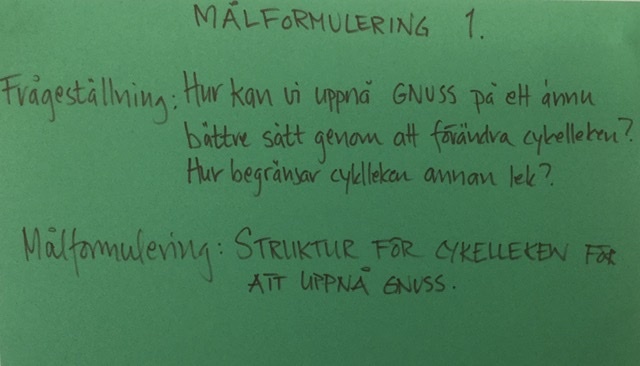 MÅLFORMULERING 1.
Frågeställning: Hur kan vi uppnå GNUSS på ett ännu
bättre sätt genom att förändra cykelleken?
Hur begränsar cyklleken annan lek?
Målformulering: STRUKTUR FÖR CYKELLEKEN FÖR
ATT UPPNÅ GNUSS.